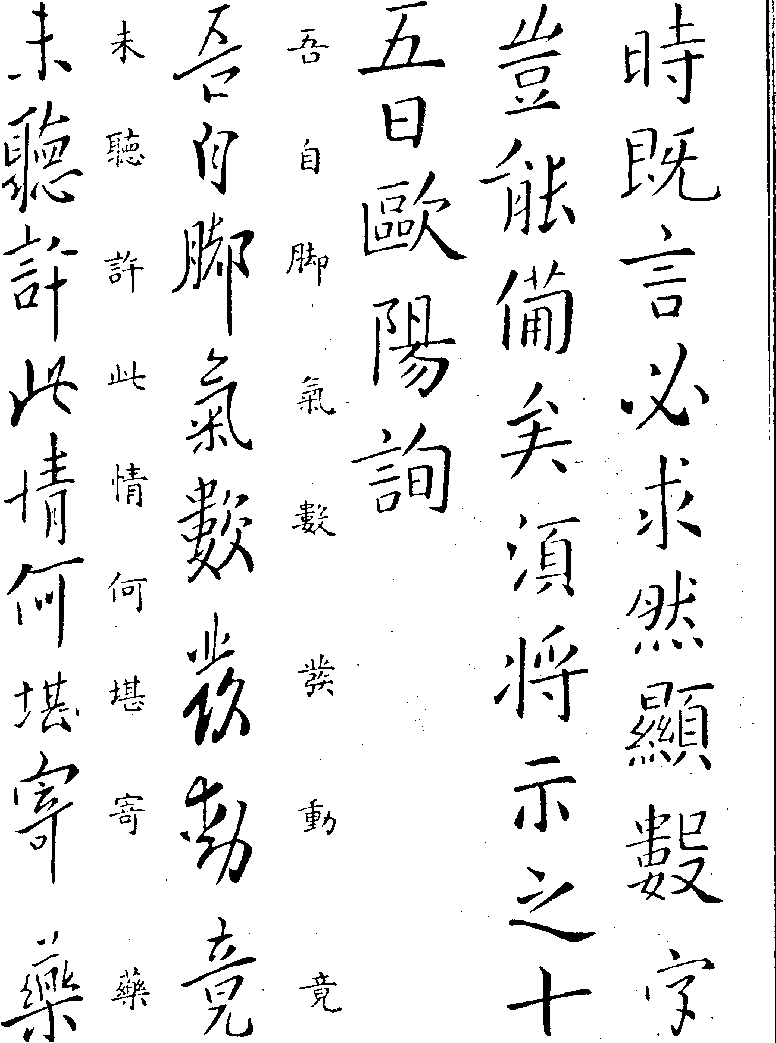 時既言必求然顯數字
豈能備矣須将示之十
五日歐陽詢
吾自脚氣數發動竟
吾自脚氣數發動竟
未聽許此情何堪寄藥
未聽許此情何堪寄藥